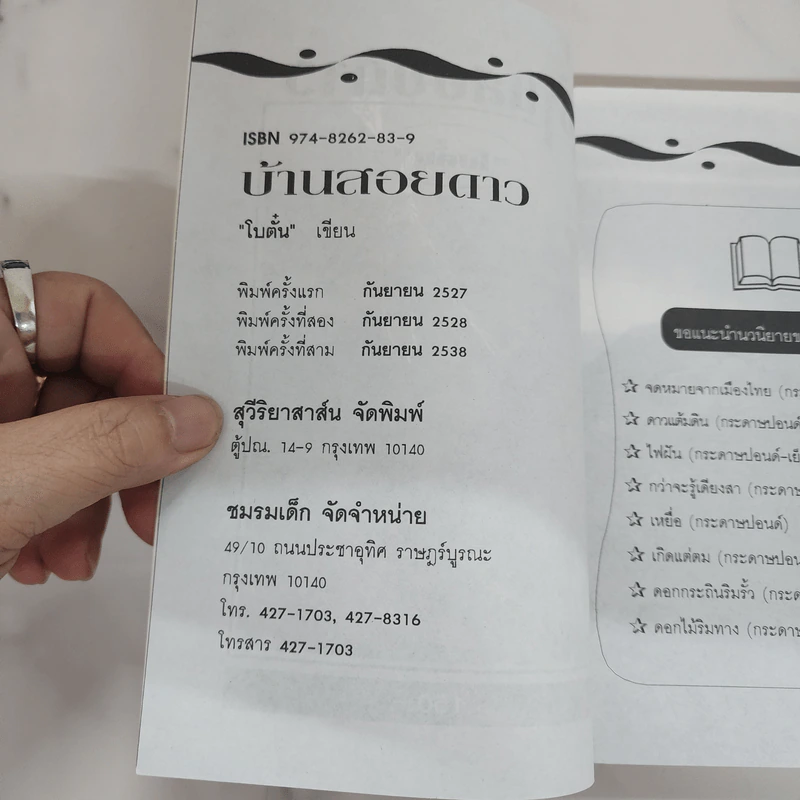 ISBN 974-8262-83-9
บ้านสอยดาว
"โบตั๋น" เขียน
พิมพ์ครั้งแรก กันยายน 2527
พิมพ์ครั้งที่สอง กันยายน 2528
พิมพ์ครั้งที่สาม กันยายน 2538
สุวีริยาสาส์น จัดพิมพ์
ตู้ปณ. 14-9 กรุงเทพ 10140
ชมรมเด็ก จัดจำหน่าย
49/10 ถนนประชาอุทิศ ราษฎร์บูรณะ
กรุงเทพ 10140
โทร. 427-1703, 427-8316
โทรสาร 427-1703
ขอแนะนำนวนิยาย
จดหมายจากเมืองไทย
ดาวแต้มดิน (กระดาษปอนด์
ไฟผัน (กระดาษปอนด์-เย็
กว่าจะรู้เดียงสา (กระดาษ
เหยื่อ (กระดาษปอนด์)
เกิดแต่ตม (กระดาษปอน
ดอกกระถินริมรั้ว (กระด
ดอกไม้ริมทาง (กระดาษ